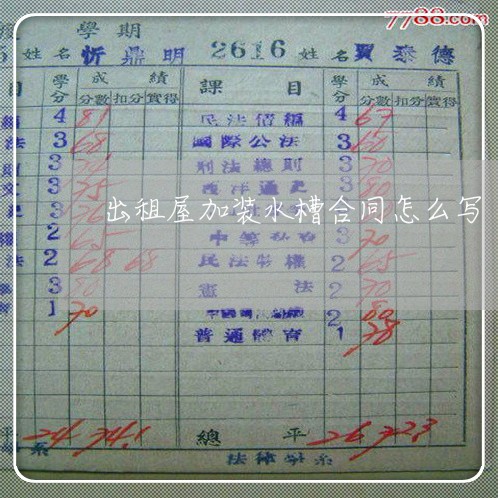 7788.com
學期
姓名 忻鼎明 2616 姓名 賈泰德
目 學分 成績 課目 學分 成績
分數 扣分 實得 分數 扣分 實得
4 81 民法債編 4 67
法 3 68 國際公法 3 60
3 刑法總則 3 70
3 75 西洋通史 3 80
出租屋加装水槽合同怎么写
2 65 3 70
法 2 68 68 民法物權 2 65
3 80 憲法 2 70
1 70 2 80
普通體育 1 78
平 24 74.1 總平 26 72.3
法律學系